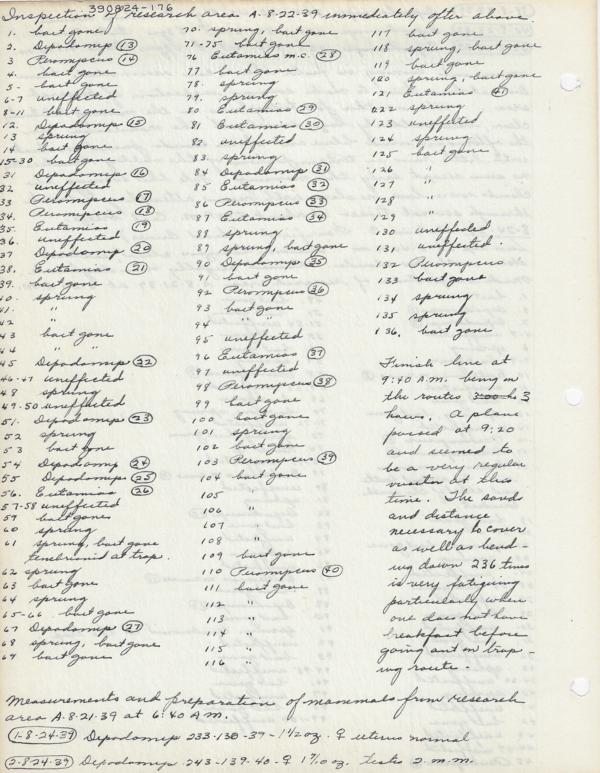 390824-176
Inspection of research area A. 8.22.39 immediately after above
1. bait gone
2. Dipodomys (13)
3 Peromyscus (14)
4. bait gone
5- bait gone
6-7 uneffected
8-11 bait gone
12. Dipodomys (15)
13 sprung
14 bait gone
15-30 bait gone
31 Dipodomys (16)
32 uneffected
33 Peromyscus (17)
34. Peromyscus (18)
35. Eutamias (19)
36. uneffected
37 Dipodomys (20)
38. Eutamias (21)
39. bait gone
40. sprung
41. " "
42 " "
43 bait gone
44 " "
45 Dipodomys (22)
46-47 uneffected
48 sprung
49-50 uneffected
51. Dipodomys (23)
52 sprung
53 bait gone
54 Dipodomys (24)
55 Dipodomys (25)
56. Eutamias (26)
57-58 uneffected
59 bait gone
60 sprung
61 sprung, bait gone
tenebrionid at trap.
62 sprung
63 bait gone
64 sprung
65-66 bait gone
67 Dipodomys (27)
68 sprung, bait gone
69 bait gone
70. sprung, bait gone
71-75 bait gone
76 Eutamias m.c. (28)
77 bait gone
78. sprung
79. sprung
80 Eutamias (29)
81 Eutamias (30)
82. uneffected
83. sprung
84 Dipodomys (31)
85 Eutamias (32)
86 Peromyscus (33)
87 Eutamias (34)
88 sprung
89 sprung, bait gone
90 Dipodomys (35)
91 bait gone
92 Peromyscus (36)
93 bait gone
94 " "
95 uneffected
96 Eutamias (37)
97 uneffected
98 Peromyscus (38)
99 bait gone
100 bait gone
101 sprung
102 bait gone
103 Peromyscus (39)
104 bait gone
105 "
106 "
107 "
108 "
109 bait gone
110 Peromyscus (40)
111 bait gone
112 "
113 "
114 "
115 "
116 "
117 bait gone
118 sprung, bait gone
119 bait gone
120 sprung, bait gone
121 Eutamias (41)
122 sprung
123 uneffected
124 sprung
125 bait gone
126 "
127 "
128 "
129 "
130 uneffected
131 uneffected.
132 Peromyscus
133 bait gone
134 sprung
135 sprung
136. bait gone
Finish line at
9:40 A.M. being on
the routes 3
hours. A plane
passed at 9:20
and seemed to
be a very regular
visitor at this
time. The sands
and distance
necessary to cover
as well as bend-
ing down 236 times
is very fatiguing
particularly when
one does not have
breakfast before
going out on trap-
ing route.
Measurements and preparation of mammals from research
area A. 8.21.39 at 6:40 A.M.
(1-8.24.39) Dipodomys 233-138-39- 1 1/2 oz. ♀ uterus normal
(2-8.24.39) Dipodomys 243-139-40-♀ 1 7/10 oz. Testes 2. m.m.